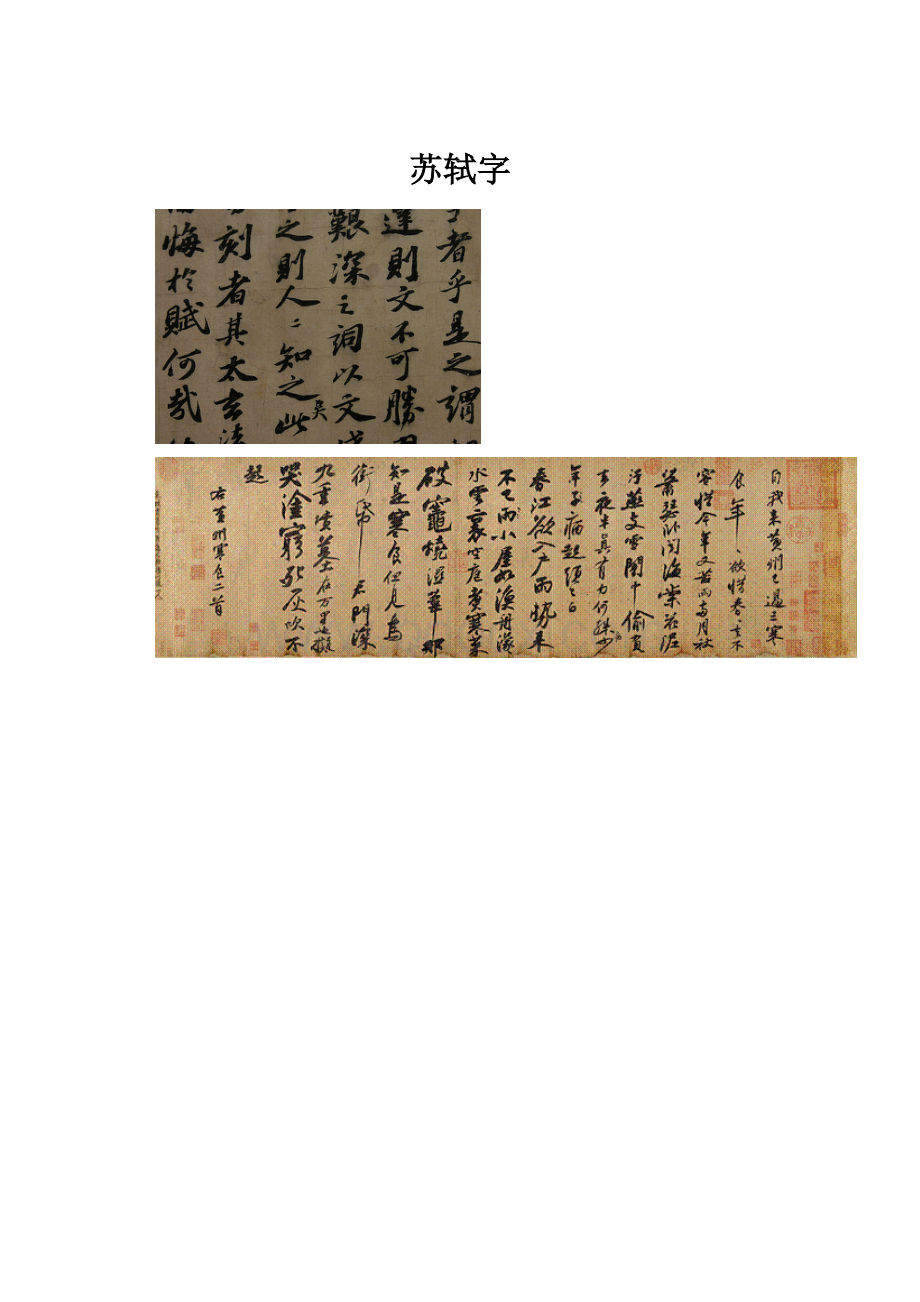 苏轼字
者乎是之謂
達則文不可勝
艱深之詞以文
之則人〻知之此
吳
刻者其太玄法
悔於賦何哉
自我來黃州已過三寒
食年〻欲惜春〻去不
容惜今年又苦雨兩月秋
蕭瑟卧聞海棠花泥
汙燕支雪闇中偷負
去夜半真有力何殊少
年子病起頭已白
春江欲入戶雨勢來
不已雨小屋如漁舟濛〻
水雲裏空庖煑寒菜
破竈燒濕葦那
知是寒食但見烏
銜帋君門深
九重墳墓在万里也擬
哭塗窮死灰吹不
起
右黃州寒食二首